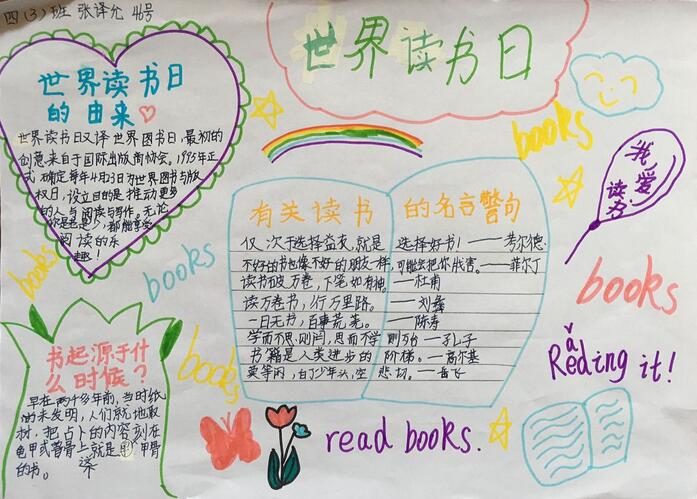 四(3)班 张译允 46号
世界读书日
世界读书日
的由来
世界读书日又译世界图书日,最初的
创意来自于国际出版商协会。1995年正
式确定每年4月23日为世界图书与版
权日,设立目的是推动更多
的人与阅读与写作。无论
你是老是少,都能享受
阅读的乐
趣!
books
我爱
读书
有关读书的名言警句
仅次于选择益友,就是选择好书!——考尔德
不好的书也像不好的朋友一样,可能会把你戕害。——菲尔丁
读书破万卷,下笔如有神。——杜甫
读万卷书,行万里路。——刘彝
一日无书,百事荒芜。——陈寿
学而不思则罔,思而不学则殆——孔子
书籍是人类进步的阶梯。——高尔基
莫等闲,白了少年头,空悲切。——岳飞
books
books
books
books
书起源于什
么时候?
早在两千多年前,当时纸
尚未发明,人们就地取
材,把占卜的内容刻在
龟甲或兽骨上就是甲骨
的书。
Reading it!
read books.